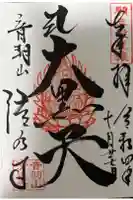 奉拝
令和四年
十月廿七日
大黒天
音羽山
清水寺